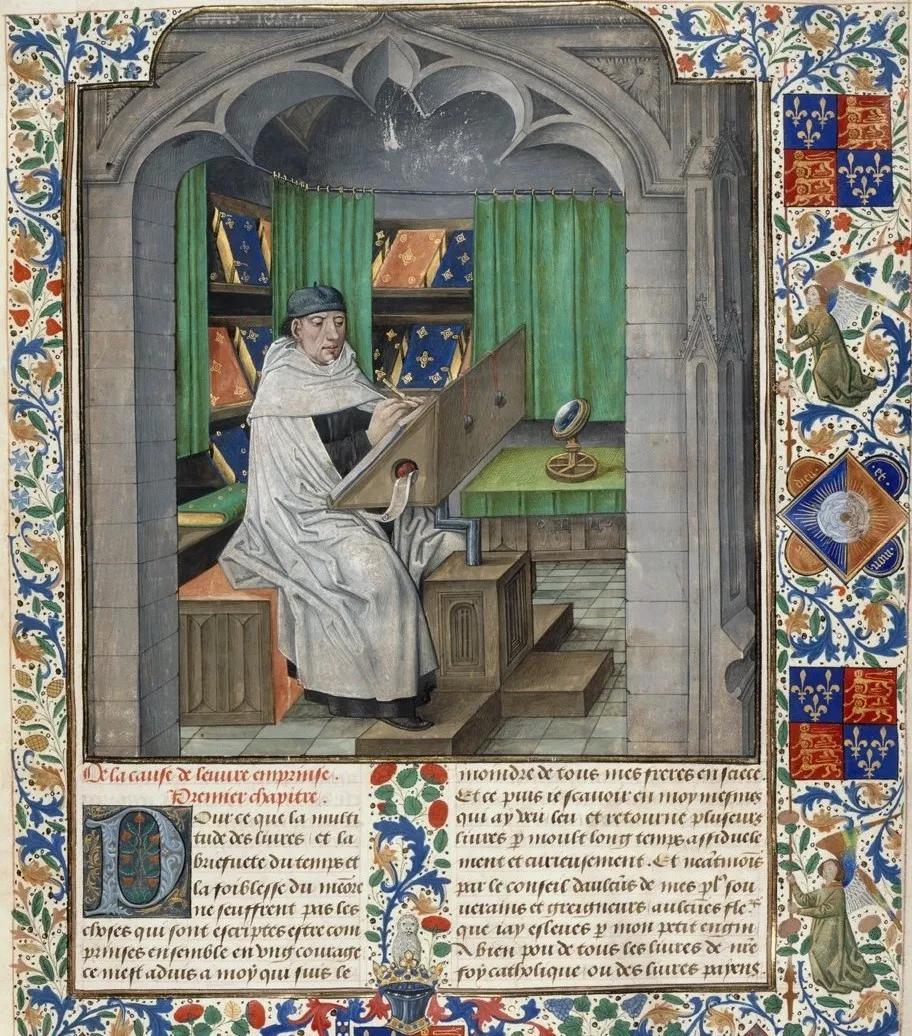 De la cause de leuure emprinse.
Premier chapitre.
Pour ce que la multi
tude des liures et la
briefuete du temps et
la foiblesse du meōre
ne seuffrent pas les
choses qui sont escriptes estre com
prinses ensemble en vng courage
ce mest aduis a moy qui suis le
moindre de tous mes freres en sciēce.
Et ce puis ie scauoir en moy mesmes
qui ay veu leu et retourne pluseurs
liures p moult long temps assiduele
ment et curieusement. Et neātmoīs
par le conseil daulcūs de mes pl9 sou
uerains et greigneurs aulcunes fle
que iay esleues p mon petit engin
A bien pou de tous les liures de nr̄e
foy catholique ou des liures payens.
dieu
et
mon